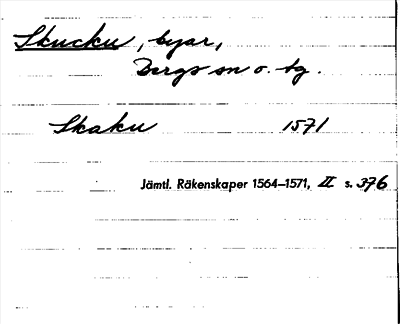 Skucku, byar,
Bergs sn o. tg.
Skaku 1571
Jämtl. Räkenskaper 1564–1571, II s. 376